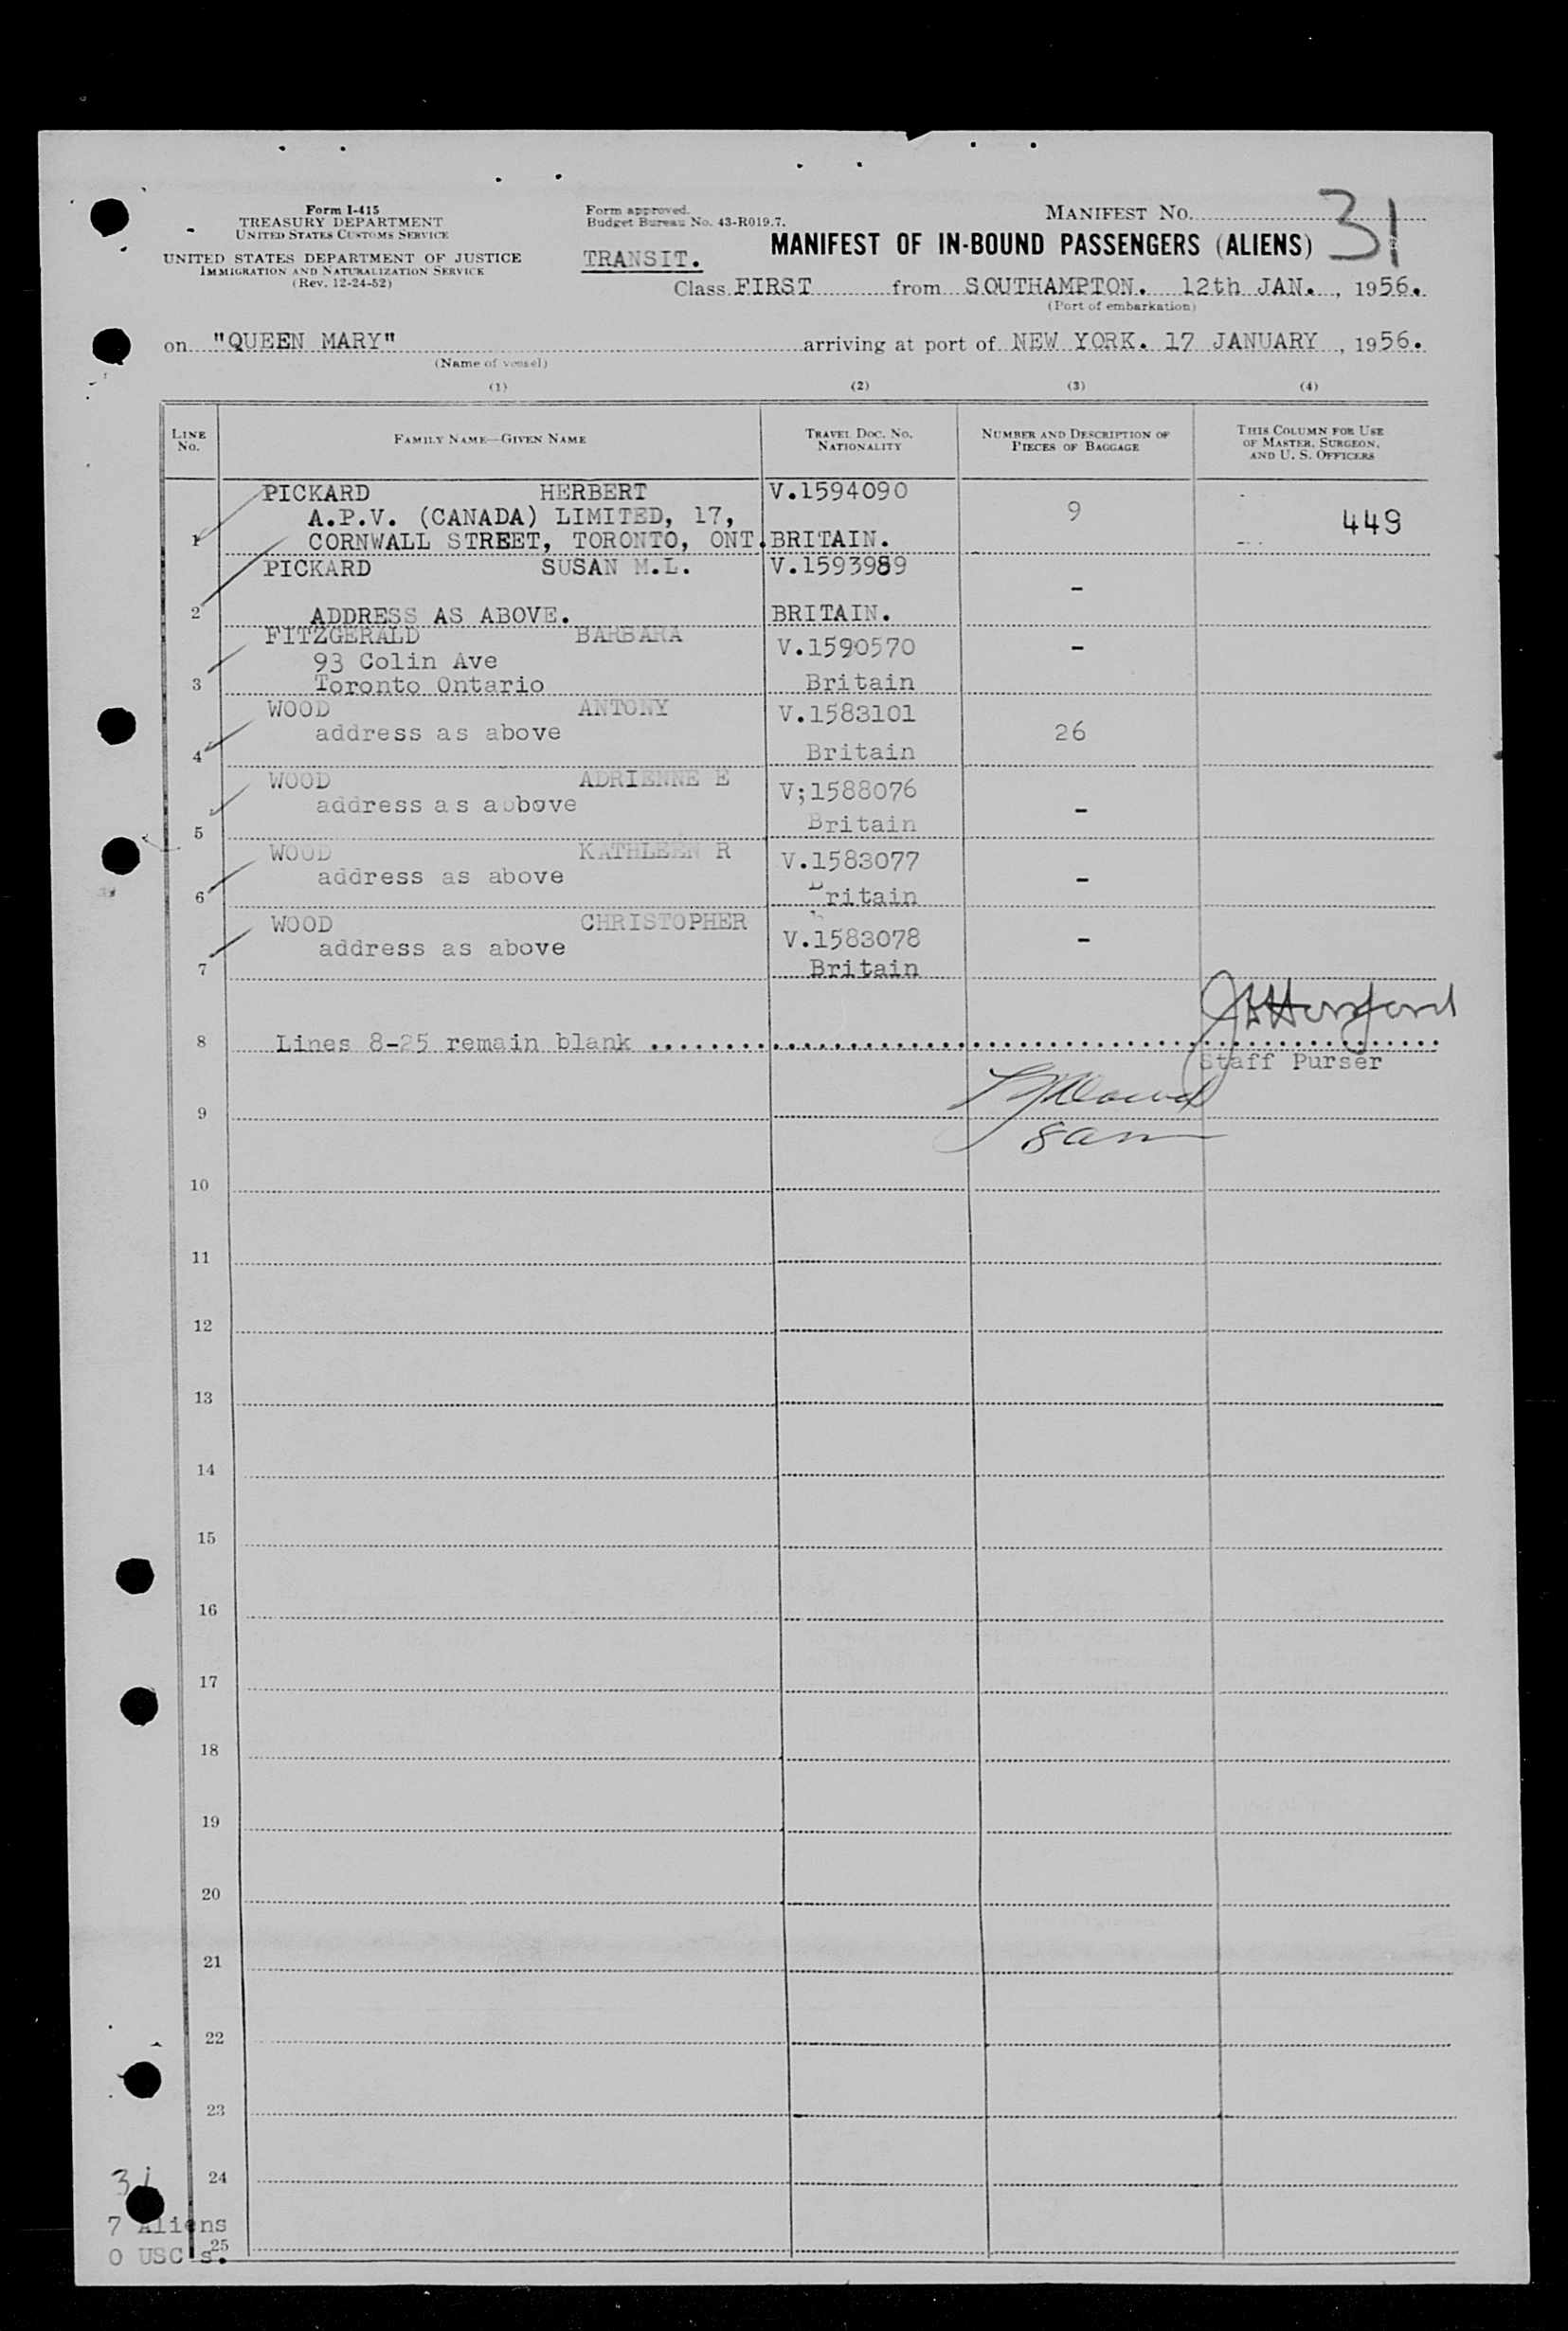 Form I-415
TREASURY DEPARTMENT
UNITED STATES CUSTOMS SERVICE
UNITED STATES DEPARTMENT OF JUSTICE
IMMIGRATION AND NATURALIZATION SERVICE
(Rev. 12-24-52)
Form approved.
Budget Bureau No. 43-R019.7.
TRANSIT.
MANIFEST NO. 31
MANIFEST OF IN-BOUND PASSENGERS (ALIENS)
Class FIRST from SOUTHAMPTON. 12th JAN., 1956.
(Port of embarkation)
on "QUEEN MARY" arriving at port of NEW YORK. 17 JANUARY, 1956.
(Name of vessel)
(1) (2) (3) (4)
LINE NO. FAMILY NAME—GIVEN NAME TRAVEL DOC. NO. NATIONALITY NUMBER AND DESCRIPTION OF PIECES OF BAGGAGE THIS COLUMN FOR USE OF MASTER, SURGEON, AND U. S. OFFICERS
PICKARD HERBERT V.1594090
A.P.V. (CANADA) LIMITED, 17, 9 449
1 CORNWALL STREET, TORONTO, ONT. BRITAIN.
PICKARD SUSAN M.L. V.1593989
-
2 ADDRESS AS ABOVE. BRITAIN.
FITZGERALD BARBARA V.1590570 -
93 Colin Ave
3 Toronto Ontario Britain
WOOD ANTONY V.1583101
address as above 26
4 Britain
WOOD ADRIENNE E V;1588076
address as abbove -
5 Britain
WOOD KATHLEEN R V.1583077
address as above -
6 Britain
WOOD CHRISTOPHER V.1583078 -
address as above
7 Britain
8 Lines 8-25 remain blank ........................................
Staff Purser
9
8am
10
11
12
13
14
15
16
17
18
19
20
21
22
23
24
31
7 Aliens
25
0 USC's.